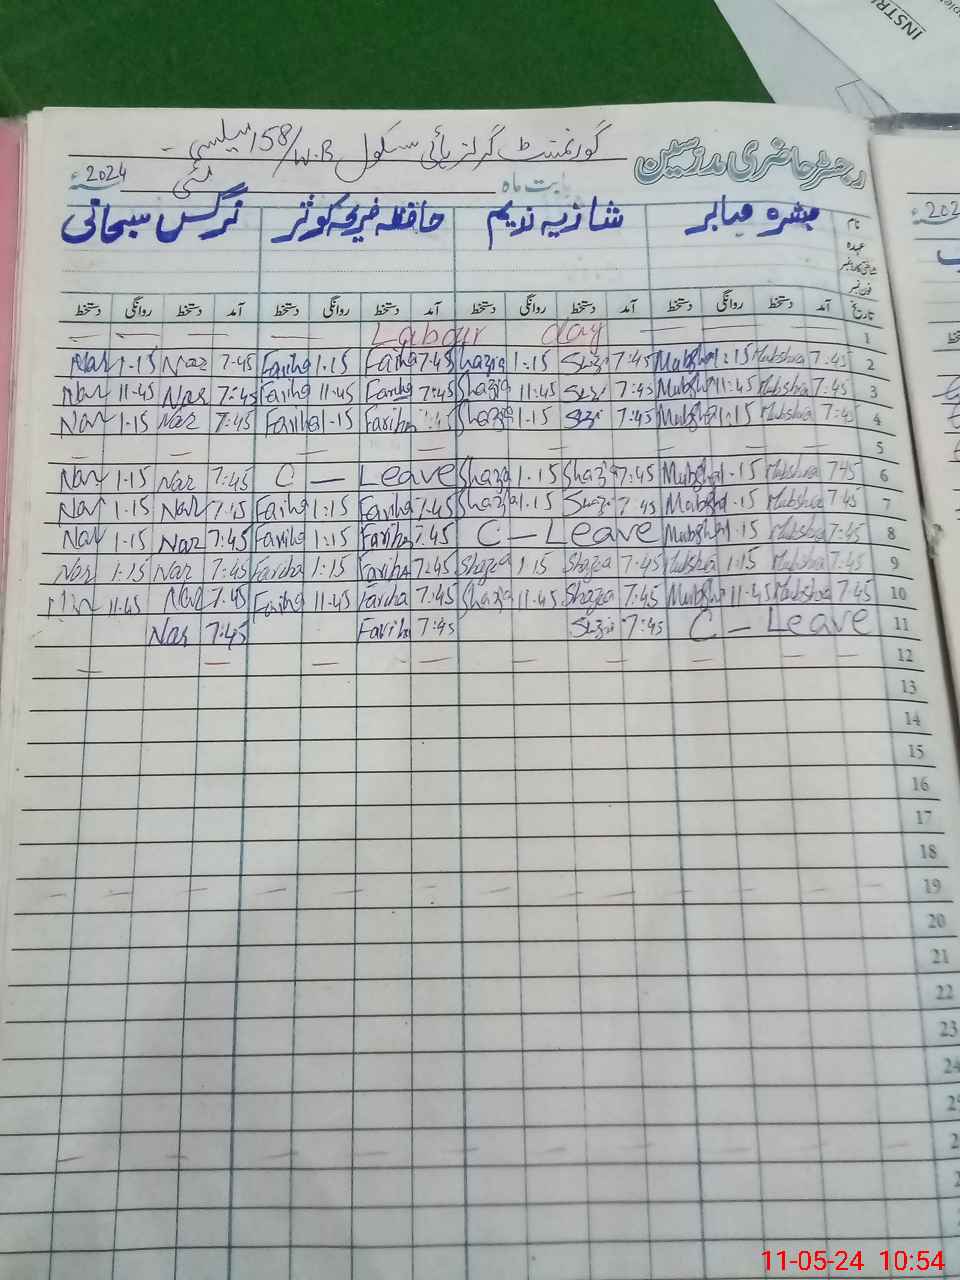 INSTRU
رجسٹر حاضری مدرسین گورنمنٹ گرلز ہائی سکول 158/W.B میلسی
بابت ماہ مئی 2024ء
نام مبشرہ صابر شازیہ ندیم حافظہ فریحہ کوثر نرگس سبحانی
عہدہ
شناختی کارڈ نمبر
فون نمبر
تاریخ آمد دستخط روانگی دستخط آمد دستخط روانگی دستخط آمد دستخط روانگی دستخط آمد دستخط روانگی دستخط
— — — Labour day — — — 1
Nar 1-15 Naz 7-45 Fariha 1.15 Fariha 7-45 Shazia 1.15 Shazi 7:45 Mubshra 1:15 Mubshra 7:45 2
Nar 11-45 Nar 7:45 Fariha 11.45 Fariha 7:45 Shazia 11.45 Shazi 7:45 Mubshra 11:45 Mubshra 7:45 3
Nar 1-15 Naz 7:45 Fariha 1-15 Fariha 7:45 Shazia 1-15 Shazi 7:45 Mubshra 1:15 Mubshra 7:45 4
— — — — — — — — 5
Nar 1-15 Naz 7:45 C — Leave Shazia 1-15 Shazia 7:45 Mubshra 1-15 Mubshra 7:45 6
Nar 1-15 Nar 7:45 Fariha 1:15 Fariha 7:45 Shazia 1-15 Shazi 7:45 Mubshra 1-15 Mubshra 7:45 7
Nar 1-15 Naz 7:45 Fariha 1:15 Fariha 7.45 C — Leave Mubshra 1-15 Mubshra 7:45 8
Nar 1:15 Naz 7:45 Fariha 1-15 Fariha 7:45 Shazia 1-15 Shazia 7:45 Mubshra 1:15 Mubshra 7:45 9
11-45 Naz 7:45 Fariha 11-45 Fariha 7:45 Shazia 11-45 Shazia 7:45 Mubshra 11-45 Mubshra 7:45 10
Nar 7:45 Fariha 7:45 Shazi 7:45 C — Leave 11
— — — — — — — — 12
13
14
15
16
17
18
19
20
21
22
23
24
11-05-24 10:54